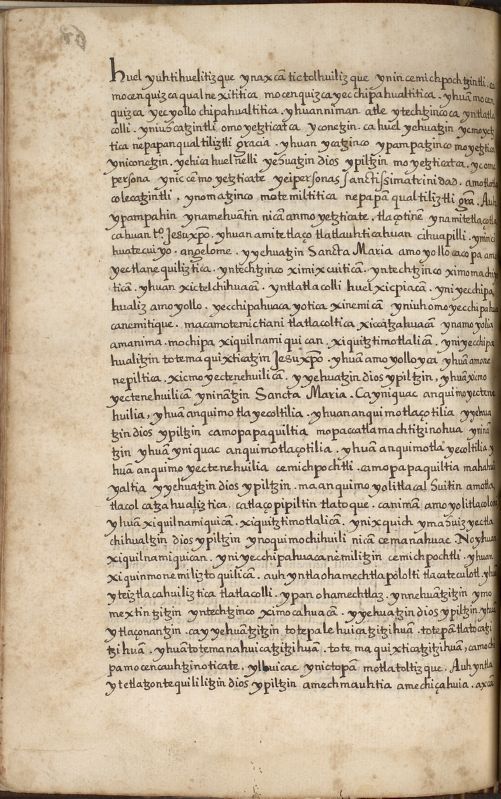 huel yuhtihuelitizque ynaxcā tictolhuilizque ynin cemichpochtzintli. ca
mocenquizca qualnexititica mocenquizca yecchipahualtitica. yhuā mocen
quizca yecyollochipahualtitica. yhuan niman atle ytechtzinco ca yntlatla
colli. yniuhcatzintli omoyetzticatca yconetzin. ca huel yehuatzin ycmoyetz
tica nepapan qualtiliztli gracia. yhuan ycatzinco ypampatzinco moyetztica
yniconetzin. yehica huelnelli yehuatzin dios ypiltzin moyetzticatca. yc ome
persona ynic cēmo yetzticate yeipersonas sanctissima trinidad. amotlatla
colecatzintli, ynomatzinco motemiltitica nepapā qualtiliztli grā. Auh
ypampahin ynamehuātin nicā anmoyetzticate. tlaçotine ynamitetlaçotla
cahuan tto Jesuxpo. yhuan amitetlaço tlatlauhticahuan cihuapilli. ymin ci
huatecuiyo. angelome. yyehuatzin Sancta Maria amoyollocacopa ami
yectlanequiliztica. yntechtzinco ximixcuiticā. yntechtzinco ximomachi
ticā. yhuan xictelchihuacā. yntlatlacolli huel xicpiacā. yniyecchipa
hualiz amoyollo. yecchipahuaca yotica xinemicā yniuh omoyecchipahua
canemitique. macamo temictiani tlatlacoltica xicatzahuacā ynamoyolia
amanima. mochipa xiquilnamiquican. xiquitztimotlalicā. yniyecchipa
hualitzin totemaquixticatzin Jesuxpo. yhuā amoyolloyca yhuā amone
nepiltica. xicmoyectenehuilicā. yyehuatzin dios ypiltzin, yhuā xicmo
yectenehuilicā yninātzin Sancta Maria. Ca yniquac anquimoyectene
huilia, yhuā anquimotlayecoltilia. yhuan anquimotlaçotilia yyehua
tzin dios ypiltzin camopapaquiltia mopaccatlamachtitzinohua yninā
tzin yhuā yniquac anquimotlaçotilia. yhuā anquimotlayecoltilia y
huā anquimoyectenehuilia cemichpochtli. camopapaquiltia mahahui
yaltia yyehuatzin dios ypiltzin. ma anquimoyolitlacalhuitin amotla
tlacolcatzahualiztica, catlaçopipiltin tlatoque. canimā amoyolitlacolo
yhuā xiquilnamiquicā. xiquitztimotlalicā. ynixquich ymahuizyectla
chihualtzin dios ypiltzin ynoquimochihuili nicā cemanahuac. No yhuan
xiquilnamiquican. yniyecchipahuacanemilitzin cemichpochtli. yhuan
xiquinmonemiliztoquilicā. auh yntla ohamechtlapololti tlacatecolotl. yhuā
yteiztlacahuiliztica tlatlacolli. ypan ohamechtlaz. ynnehuātzitzin ymo
mextintzitzin yntechtzinco ximocahuacā. yyehuatzin dios ypiltzin yhuā
ytlaçonantzin. cayyehuātzitzin totepalehuicatzitzihuā. totepātlatocatzi
tzihuā. yhuā totemanahuicatzitzihuā. totemaquixticatzitzihuā, camochi
pa mocencauhtzinoticate, ylhuicac ynictopā motlatoltizque. Auh yntla
ytetlatzontequililitzin dios ypiltzin amechmauhtia amechiçahuia. axcā